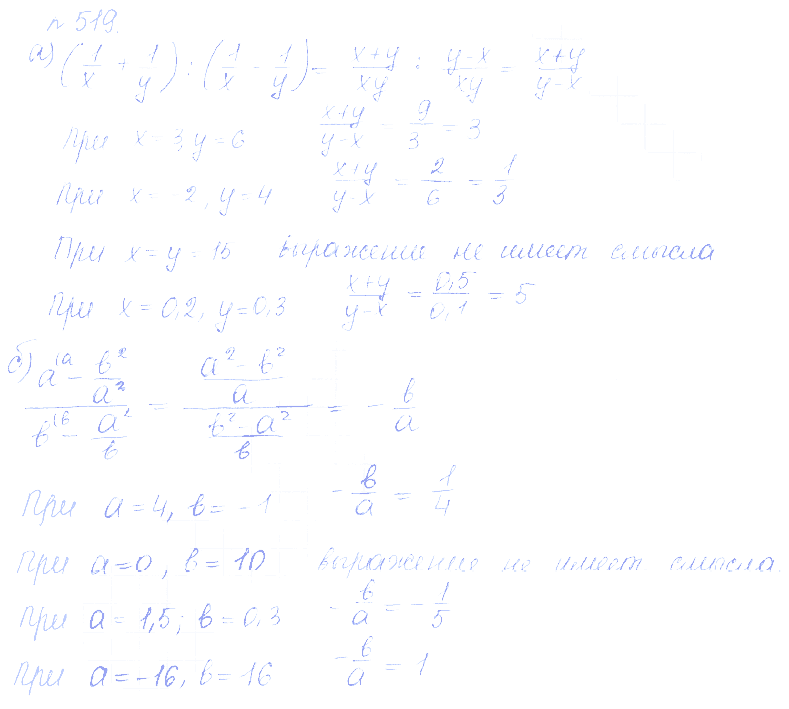 № 519.
а) (1/x + 1/y) : (1/x - 1/y) = (x+y)/(xy) : (y-x)/(xy) = (x+y)/(y-x)
При x = 3, y = 6 (x+y)/(y-x) = 9/3 = 3
При x = -2, y = 4 (x+y)/(y-x) = 2/6 = 1/3
При x = y = 15 выражение не имеет смысла
При x = 0,2, y = 0,3 (x+y)/(y-x) = 0,5/0,1 = 5
б) (a^(\a) - b²/a²)/(b^(\b) - a²/b) = ((a² - b²)/a)/((b² - a²)/b) = - b/a
При a = 4, b = -1 - b/a = 1/4
При a = 0, b = 10 выражение не имеет смысла.
При a = 1,5; b = 0,3 - b/a = - 1/5
При a = -16, b = 16 - b/a = 1